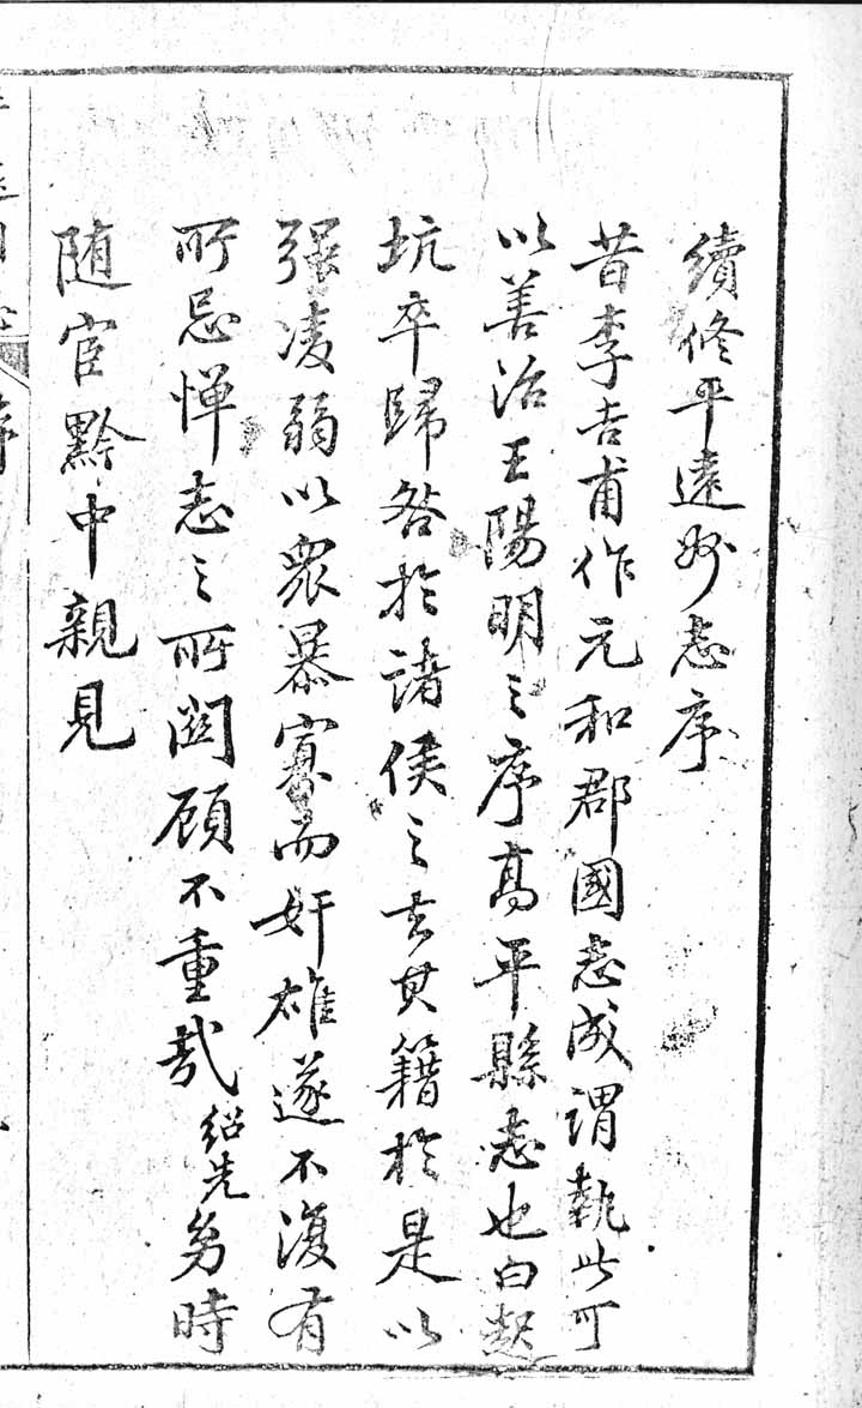 續修平遠州志序
昔李吉甫作元和郡國志成謂執此可
以善治王陽明之序髙平縣志也白起
坑卒歸咎於諸侯之去其籍於是以
强凌弱以衆暴寡而奸雄遂不復有
所忌惮志之所関顧不重哉紹先幼時
随宦黔中親見